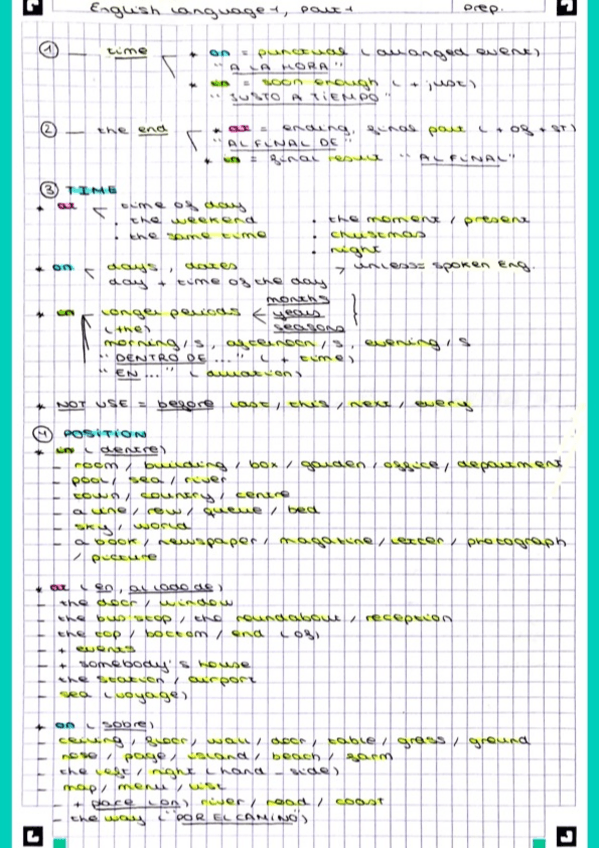 English Language 1, Part 1 Prep.
① — time * on = punctual (arranged event)
"A LA HORA"
* in = soon enough (+ just)
"JUSTO A TIEMPO"
② — the end * at = ending, final part (+ of + ST)
"AL FINAL DE"
* in = final result "AL FINAL"
③ TIME
* at < time of day
· the weekend · the moment / present
· the same time · christmas
· night
* on < days, dates > unless spoken Eng.
day + time of the day
* in < longer periods < months
(the) years
seasons
morning/s, afternoon/s, evening/s
"DENTRO DE ..." (+ time)
"EN ..." (duration)
* NOT USE = before last, this, next, every
④ POSITION
* in (dentro)
– room / building / box / garden / office / department
– pool / sea / river
– town / country / centre
– a line / row / queue / bed
– sky / world
– a book / newspaper / magazine / letter / photograph
/ picture
* at (en, al lado de)
– the door / window
– the bus stop / the roundabout / reception
– the top / bottom / end (of)
– + events
– + somebody's house
– the station / airport
– sea (voyage)
* on (sobre)
– ceiling / floor / wall / door / table / grass / ground
– nose / page / island / beach / farm
– the left / right (hand-side)
– map / menu / list
– + place (on) river / road / coast
– the way ("POR EL CAMINO")